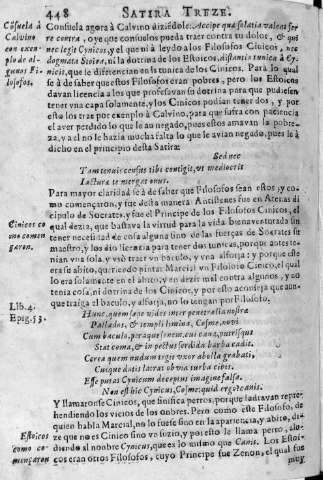 448 SATIRA TREZE.
Cõsuela a
Calvino
con exem-
plo de al-
gunos Fi-
losofos.
Consuela agora à Calvino diziẽdole. Accipe quæ solatia valeas fer
re contra, oye que consuelos pueda traer contra tu dolor, & qui
nec legit Cynicos, y el que ni à leydo a los Filosofos Cinicos, nec
dogmata Stoica, ni la dotrina de los Estoicos, distantia tunica à Cy-
nicis, que le diferencian en la tunica de los Cinicos. Para lo qual
se à de saber que estos Filosofos eran pobres, pero los Estoicos
davan licencia a los que professavan su dotrina para que pudiessen
tener una capa solamente, y los Cinicos podian tener dos, y por
esto los trae por exemplo à Calvino, para que sufra con paciencia
el aver perdido lo que le an negado, pues estos amavan la pobre-
za, y a el no le hazia mucha falta lo que le avian negado, pues le à
dicho en el principio desta Satira:
Sed nec
Tam tenuis census tibi contigit, ut mediocris
Iacturæ te mergat onus.
Para mayor claridad se à de saber que Filosofos sean estos, y co-
mo començaron, y fue desta manera Antistenes fue en Atenas di
Cinicos co
mo comen
çaron.
cipulo de Socrates, y fue el Principe de los Filosofos Cinicos, el
qual dezia, que bastava la virtud para la vida bienaventurada sin
tener necessidad de cosa alguna sino de las fuerças de Socrates su
maestro, y los dio licencia para tener dos tunicas, porque antes te-
nian una sola, y usò traer un baculo, y una alforja: y porque este
era su abito, queriẽdo pintar Marcial un Filosofo Cinico, el qual
lo era solamente en el abito, y en dezir mal contra algunos, y no
tenia cosa, ni dotrina de los Cinicos, y por esto aconseja que aun-
que traiga el baculo, y alforja, no lo tengan por Filosofo.
Lib. 4.
Epig. 53.
Hunc, quem sæpe vides inter penetralia nostræ
Pallados, & templi limina, Cosme, novi
Cum baculo, peraque senem, cui cana, putrisque
Stat coma, & in pectus sordida barba cadit.
Cerea quem nudum tegit uxor abolla grabati,
Cuique datis latrat obvia turba cibis.
Esse putas Cynicum deceptus imagine falsa.
Non est hic Cynicus, Cosme: quid ergo? canis.
Y llamaronse Cinicos, que sinifica perros, porque ladravan repre-
hendiendo los vicios de los onbres. Pero como este Filosofo, de
quien habla Marcial, no lo fuesse sino en la apariencia, y abito, di-
Estoicos
como co-
mençaron
ze que no es Cinico sino vozinglero, y por esto le llama perro, alu-
diendo al nonbre Cynicus, que es lo mismo que Canis. Los Estoi-
cos eran otros Filosofos, cuyo Principe fue Zenon, el qual fue
muy